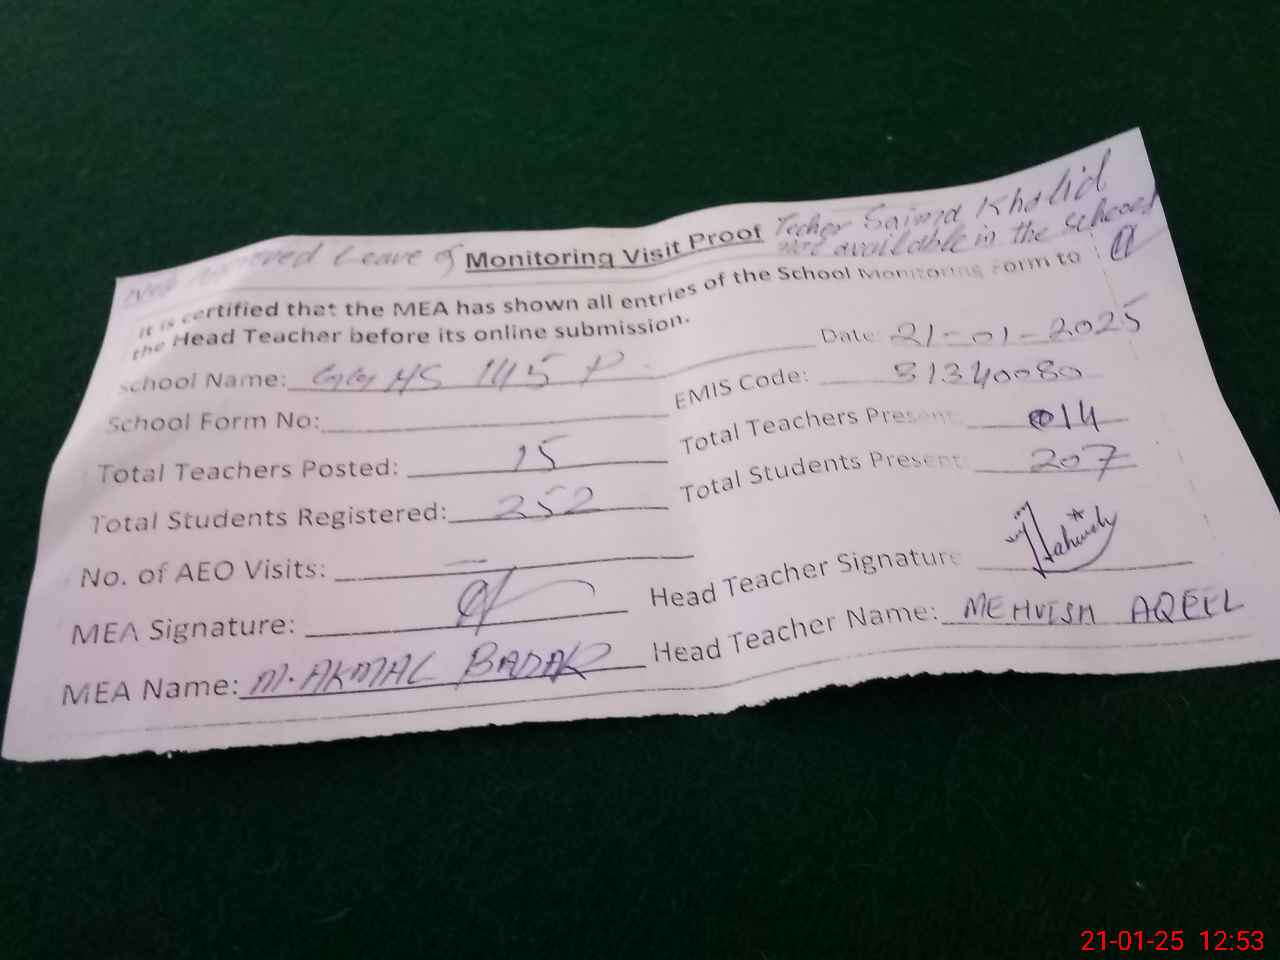 Leave of Monitoring Visit Proof Techer Saima Khalid
not available in the school
It is certified that the MEA has shown all entries of the School Monitoring Form to
the Head Teacher before its online submission.
Date: 21-01-2025
School Name: GGHS 145 P.
EMIS Code: 31340080
School Form No:
Total Teachers Present 14
Total Teachers Posted: 15
Total Students Present 207
Total Students Registered: 252
No. of AEO Visits: —
Head Teacher Signature
MEA Signature:
Head Teacher Name: MEHVISH AQEEL
MEA Name: M. AKMAL BADAR
21-01-25 12:53